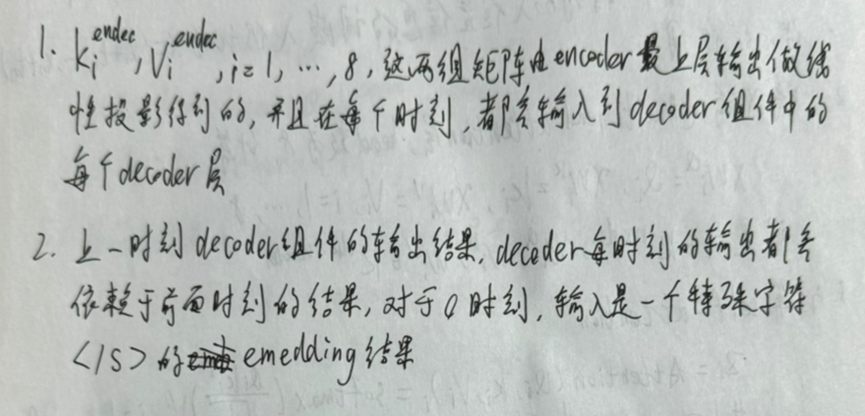 1. K_i^{endec}, V_i^{endec}, i=1, …, 8, 这两组矩阵由encoder最上层输出做线
性投影得到的, 并且在每个时刻, 都会输入到decoder组件中的
每个decoder层
2. 上一时刻decoder组件的输出结果, decoder每时刻的输出都会
依赖于前面时刻的结果, 对于0时刻, 输入是一个特殊字符
</s>的emedding结果